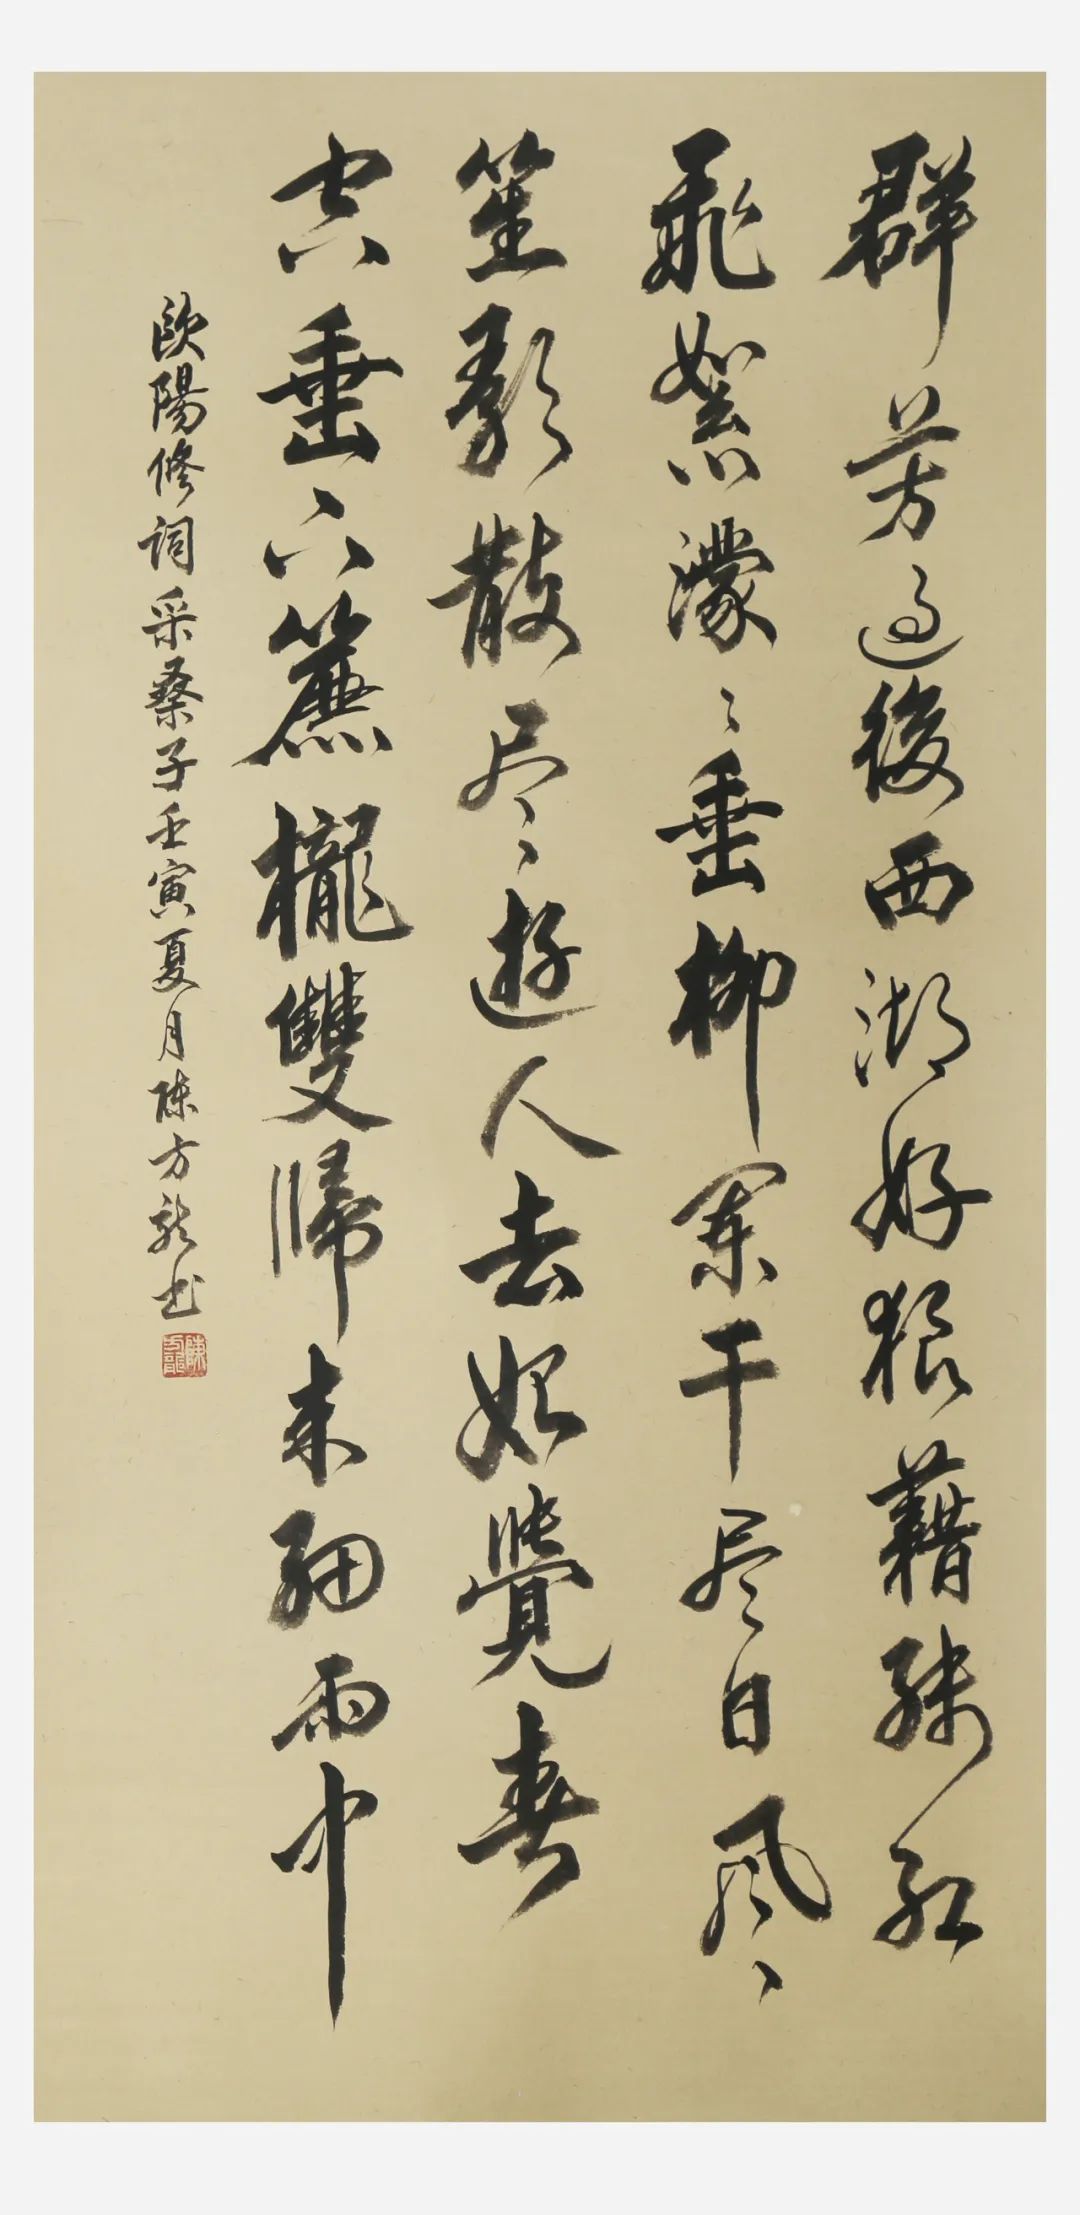 群芳過後西湖好狼藉殘紅
飛絮濛〻垂柳闌干尽日風
笙歌散尽遊人去始覺春
空垂下簾櫳雙歸来細雨中
欧陽修詞采桑子壬寅夏月陈方龙书
陳方龍